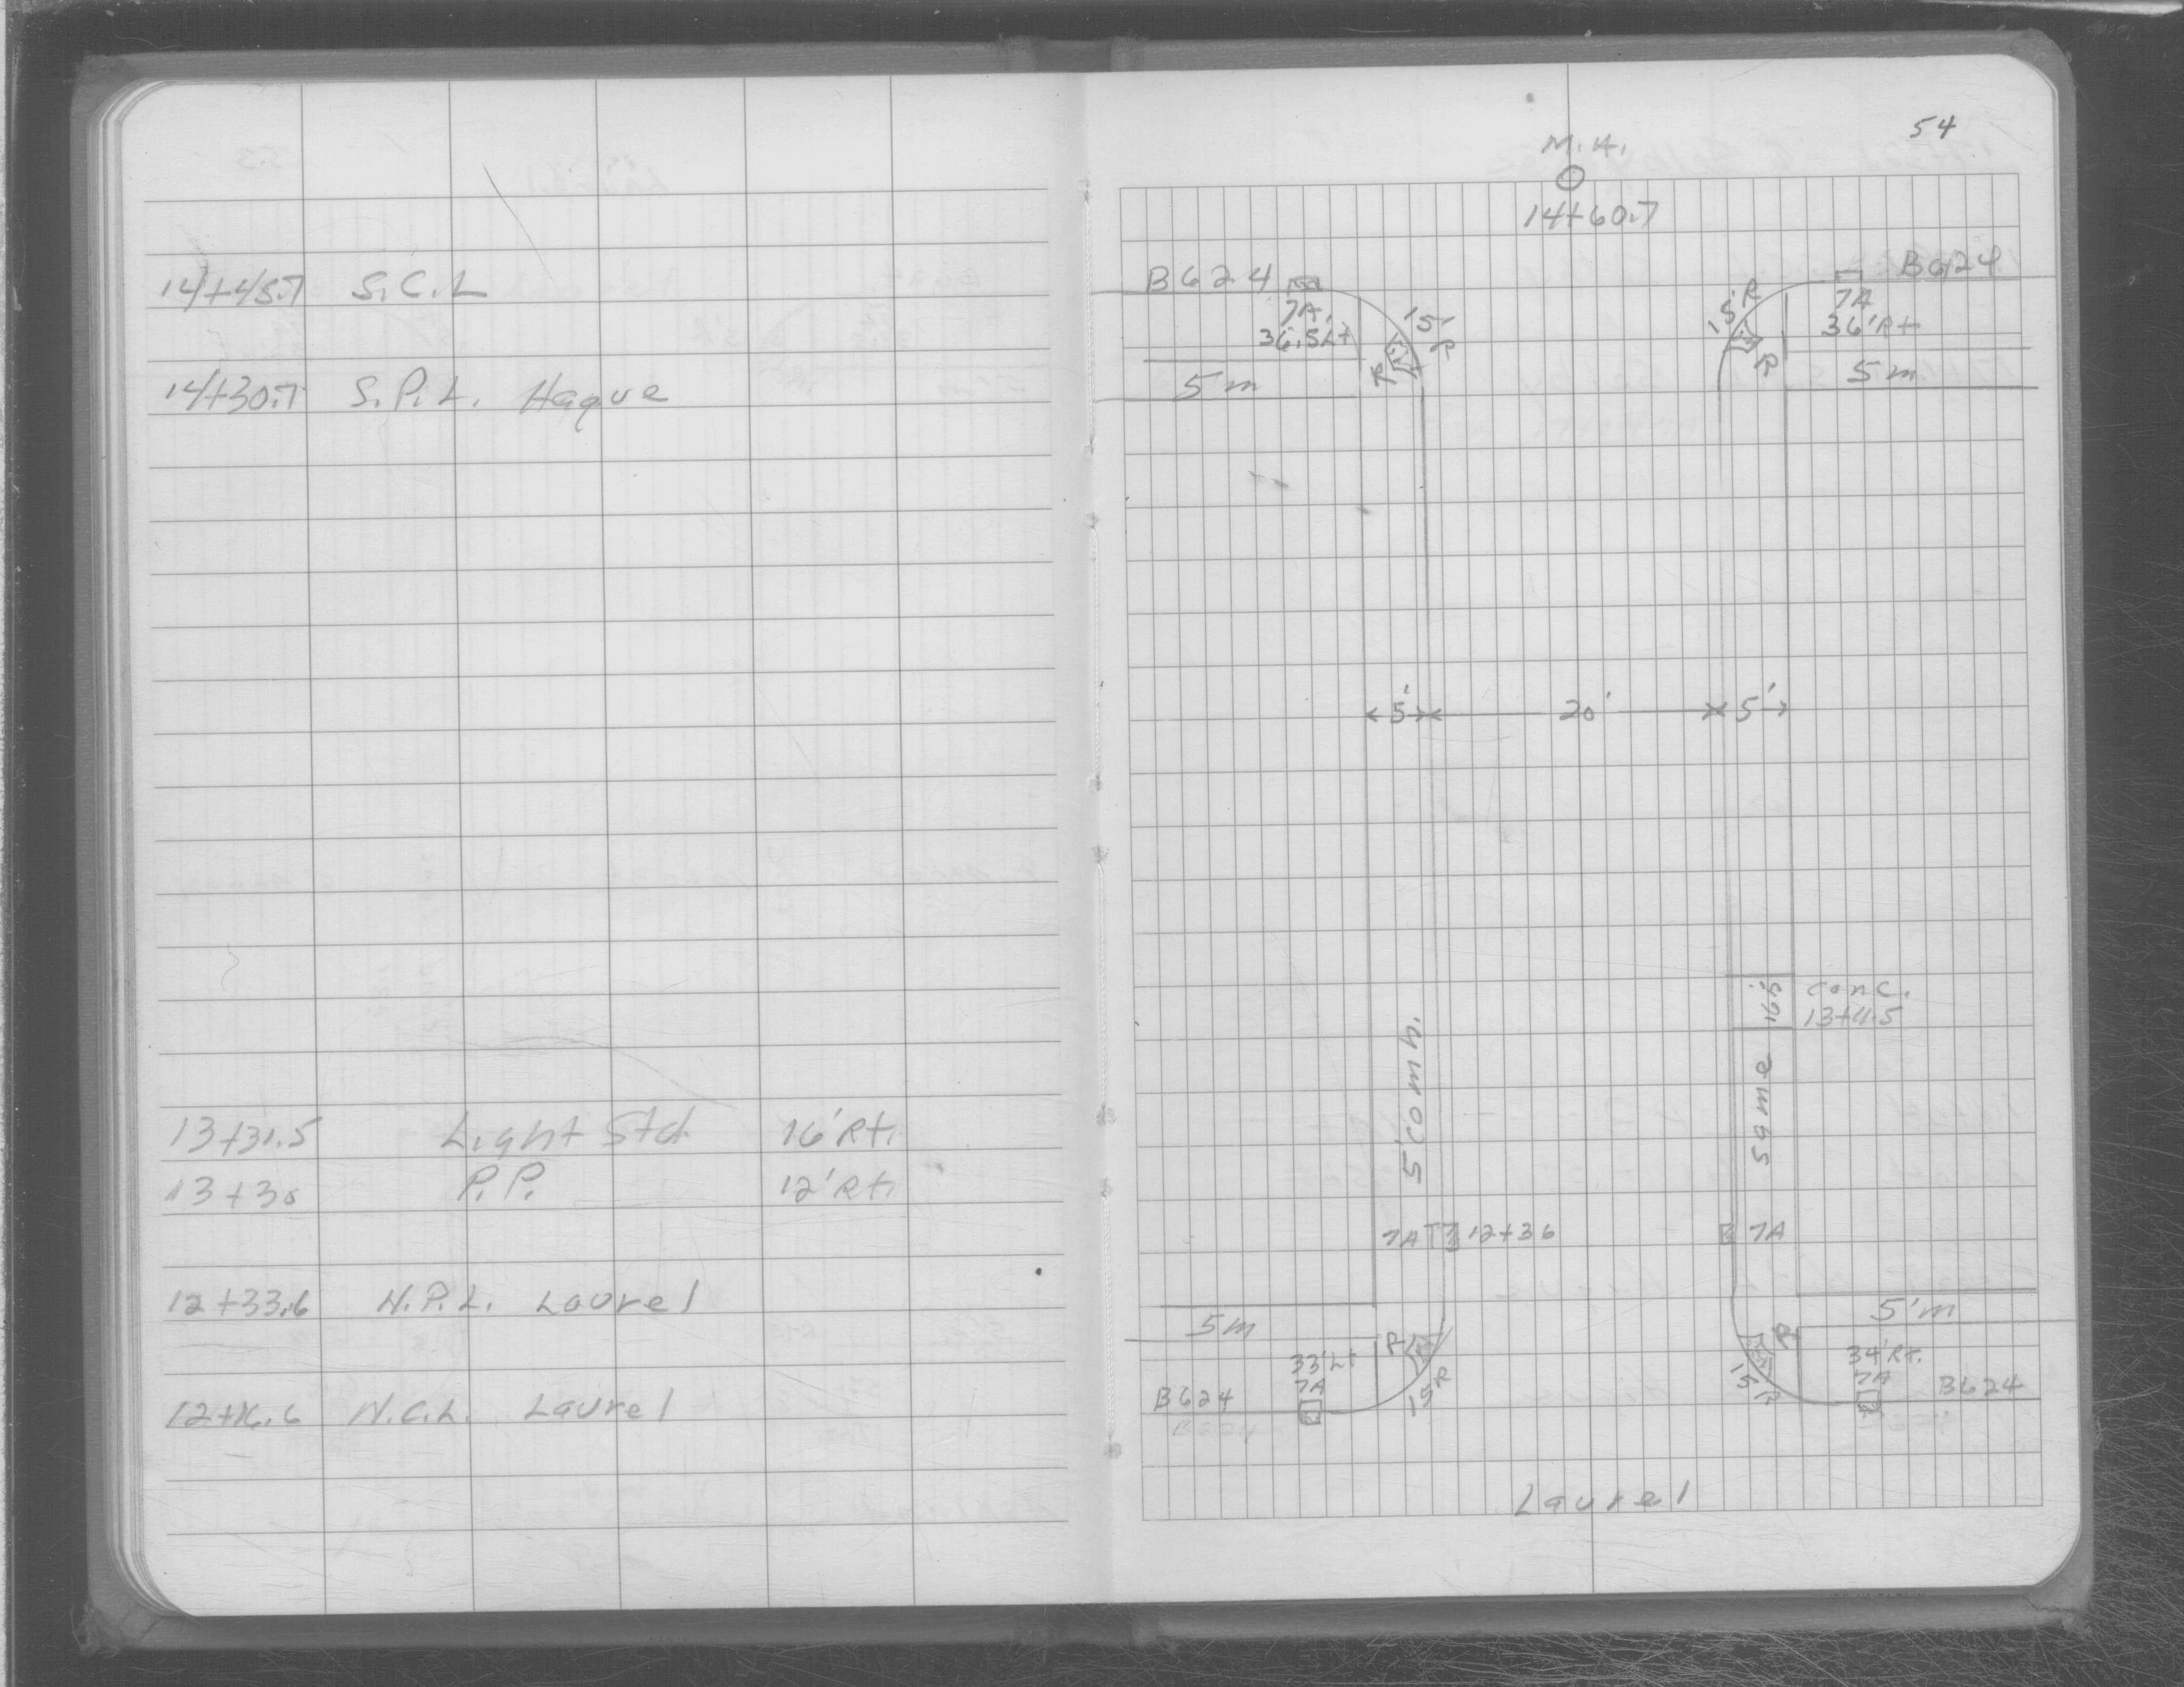 14+45.7 S.C.L
14+30.7 S.P.L. Hague
13+31.5 Light Std. 16'Rt.
13+30 P.P. 12'Rt.
12+33.6 N.P.L. Laurel
12+16.6 N.C.L. Laurel
54
M.H.
14+60.7
B624
7A
36.5Lt
15'R
R
5m
B624
7A
36'Rt
15'R
R
5m
5' 20' 5'
16.5
conc.
13+11.5
5'comb.
same
7A 12+36
7A
5m
R
33'Lt
7A
15R
B624
5'm
R
34'Rt.
7A
15R
B624
Laurel